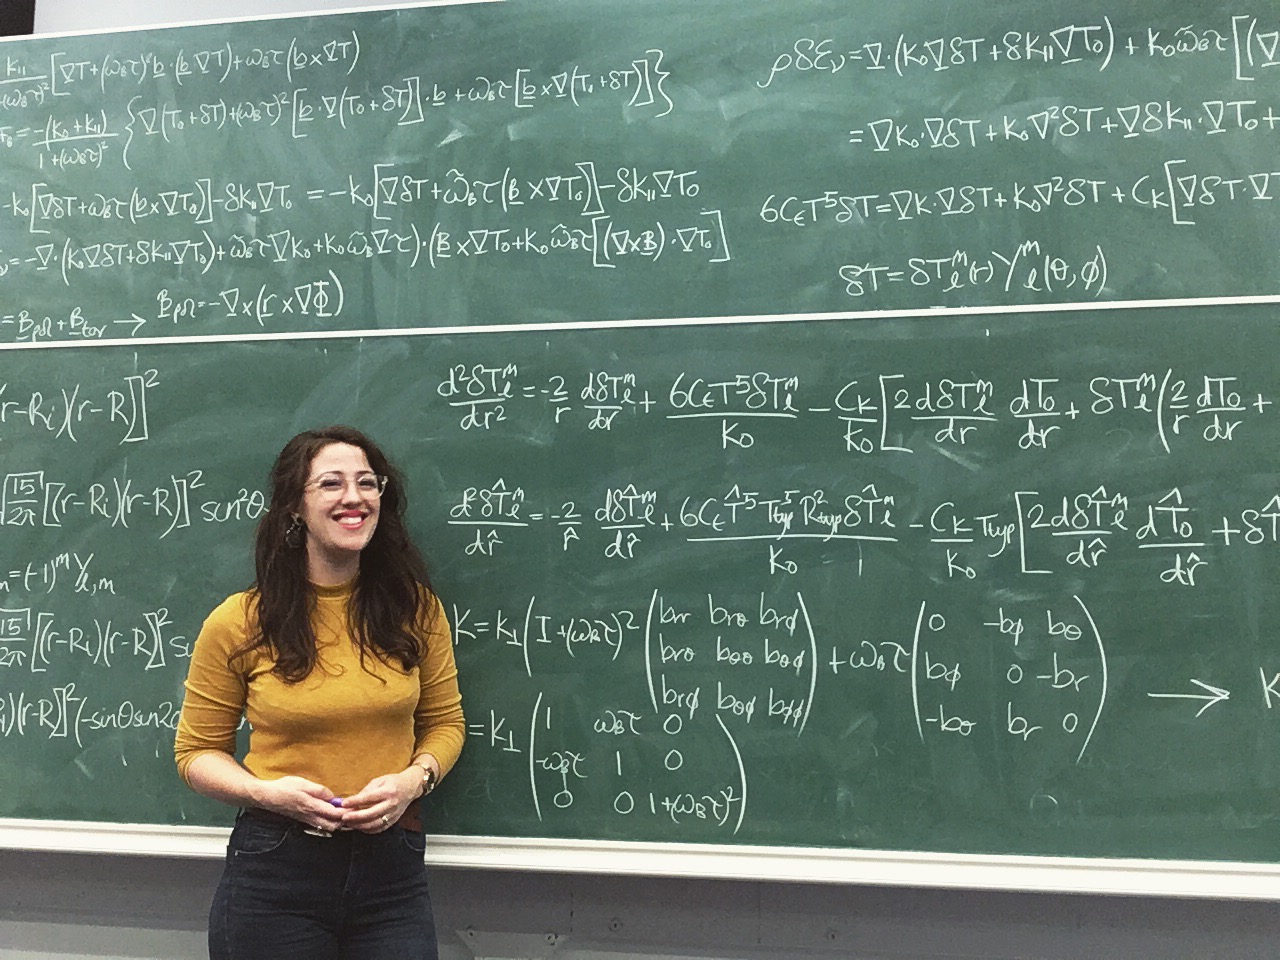 k_∥/(1+(ω_Bτ)²) [∇T+(ω_Bτ)²b·(b∇T)+ω_Bτ(b×∇T)]
= -(k₀+k_∥)/(1+(ω_Bτ)²) {∇(T₀+δT)+(ω_Bτ)²[b·∇(T₀+δT)]·b+ω_Bτ[b×∇(T₀+δT)]}
-k₀[∇δT+ω_Bτ(b×∇T₀)]-δk_∥∇T₀ = -k₀[∇δT+ω̃_Bτ(B×∇T₀)]-δk_∥∇T₀
=-∇·(k₀∇δT+δk_∥∇T₀)+ω̃_Bτ∇k₀+k₀ω̃_B∇τ)·(B×∇T₀+k₀ω̃_Bτ[(∇×B)·∇T₀]
=B_pol+B_tor → B_pol=-∇×(r×∇Φ)
ρδε_ν=∇·(k₀∇δT+δk_∥∇T₀)+k₀ω̃_Bτ[(∇
=∇k₀·∇δT+k₀∇²δT+∇δk_∥·∇T₀+
6C_εT⁵δT=∇k·∇δT+k₀∇²δT+C_k[∇δT·∇
δT=δT_l^m(r)Y_l^m(θ,ϕ)
(r-R_i)(r-R)]²
√(15/2π)[(r-R_i)(r-R)]²sin²θ
=(-1)^m Y_l,m
15/2π[(r-R_i)(r-R)]²
)(r-R)]²(-sinθsin2
d²δT_l^m/dr²=-2/r dδT_l^m/dr+6C_εT⁵δT_l^m/k₀-C_k/k₀[2dδT_l^m/dr dT₀/dr+δT_l^m(2/r dT₀/dr+
d²δT̂_l^m/dr̂=-2/r̂ dδT̂_l^m/dr̂+6C_εT̂⁵T_typ⁵R_typ²δT̂_l^m/k₀-C_k/k₀T_typ[2dδT̂_l^m/dr̂ dT̂₀/dr̂+δT̂
K=k_⊥(I+(ω_Bτ)²(b_rr b_rθ b_rϕ
b_rθ b_θθ b_θϕ
b_rϕ b_θϕ b_ϕϕ)+ω_Bτ(0 -b_ϕ b_θ
b_ϕ 0 -b_r
-b_θ b_r 0) → K
=k_⊥(1 ω_Bτ 0
-ω_Bτ 1 0
0 0 1+(ω_Bτ)²)